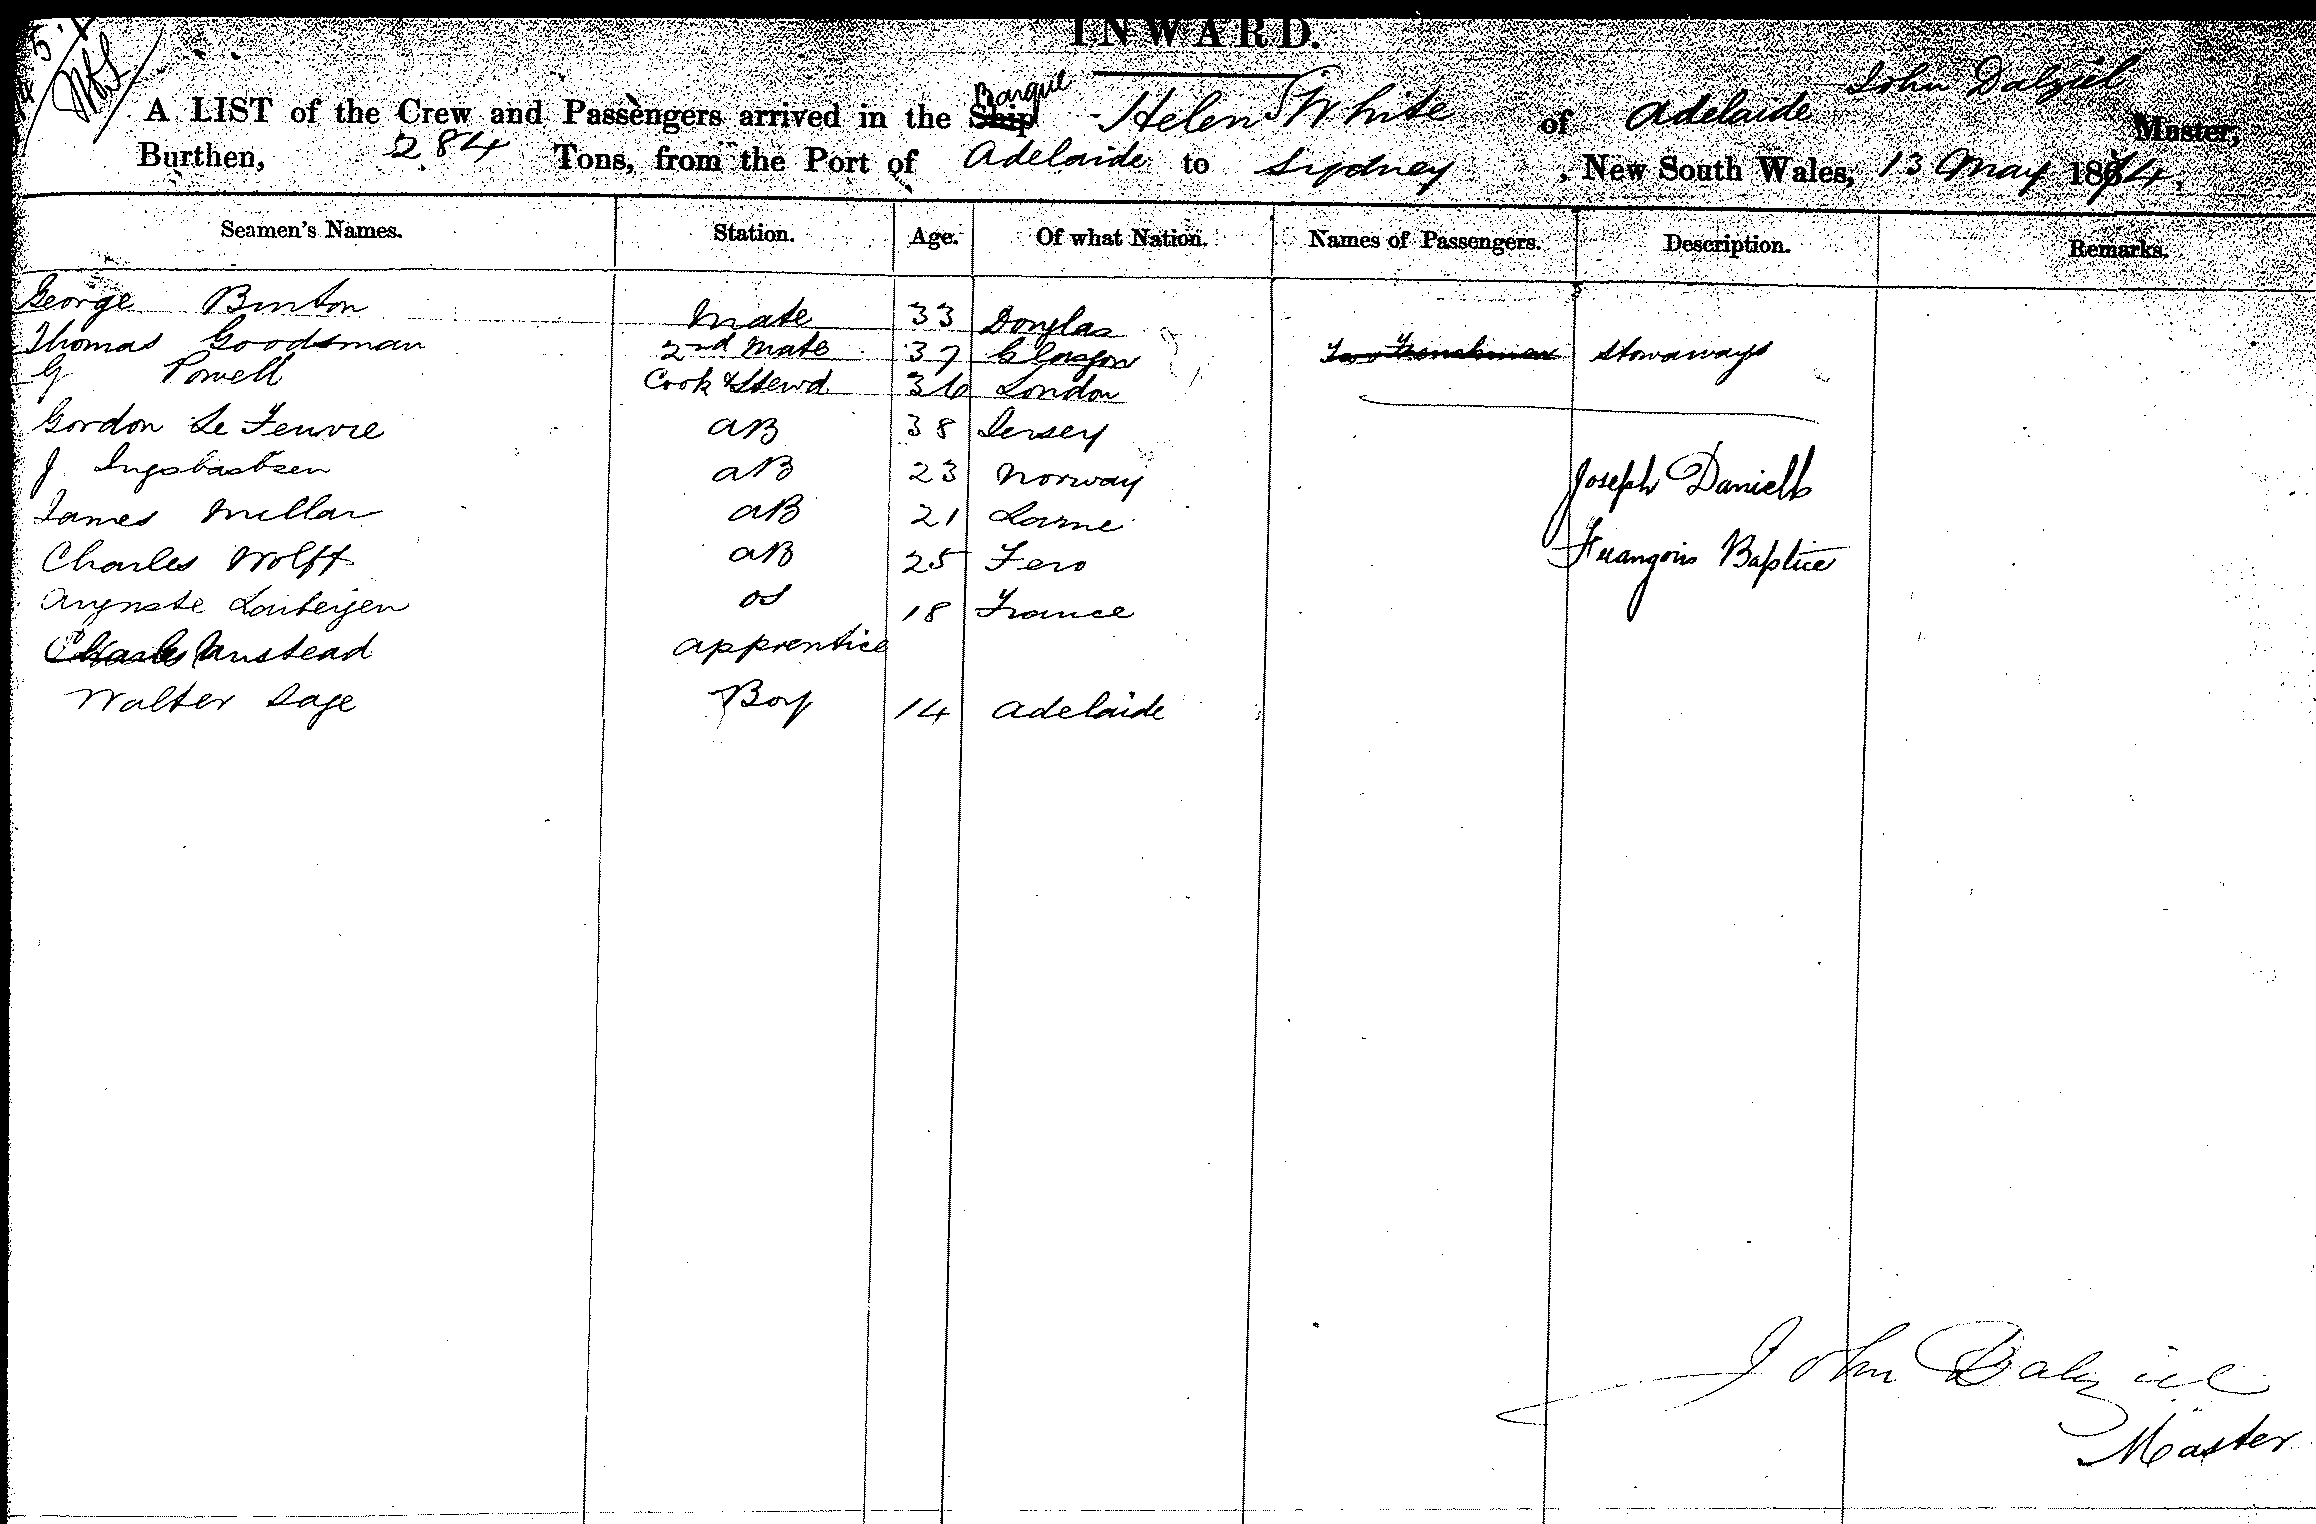 INWARD.
A LIST of the Crew and Passengers arrived in the Ship Barque Helen White of Adelaide John Dalziel Master,
Burthen, 284 Tons, from the Port of Adelaide to Sydney, New South Wales, 13 May 1874,
Seamen's Names. Station. Age. Of what Nation. Names of Passengers. Description. Remarks.
George Binton Mate 33 Douglas
Thomas Goodsman 2nd Mate 37 Glasgow Two Frenchmen Stowaways
G Powell Cook & Stewd 36 London
Gordon Le Feuvre AB 38 Jersey
J AB 23 Norway Joseph Daniells
James Millar AB 21 Larne
Charles Wolff AB 25 Fero François Baptice
Auguste OS 18 France
Charles Anstead apprentice
Walter Sage Boy 14 Adelaide
John Dalziel
Master